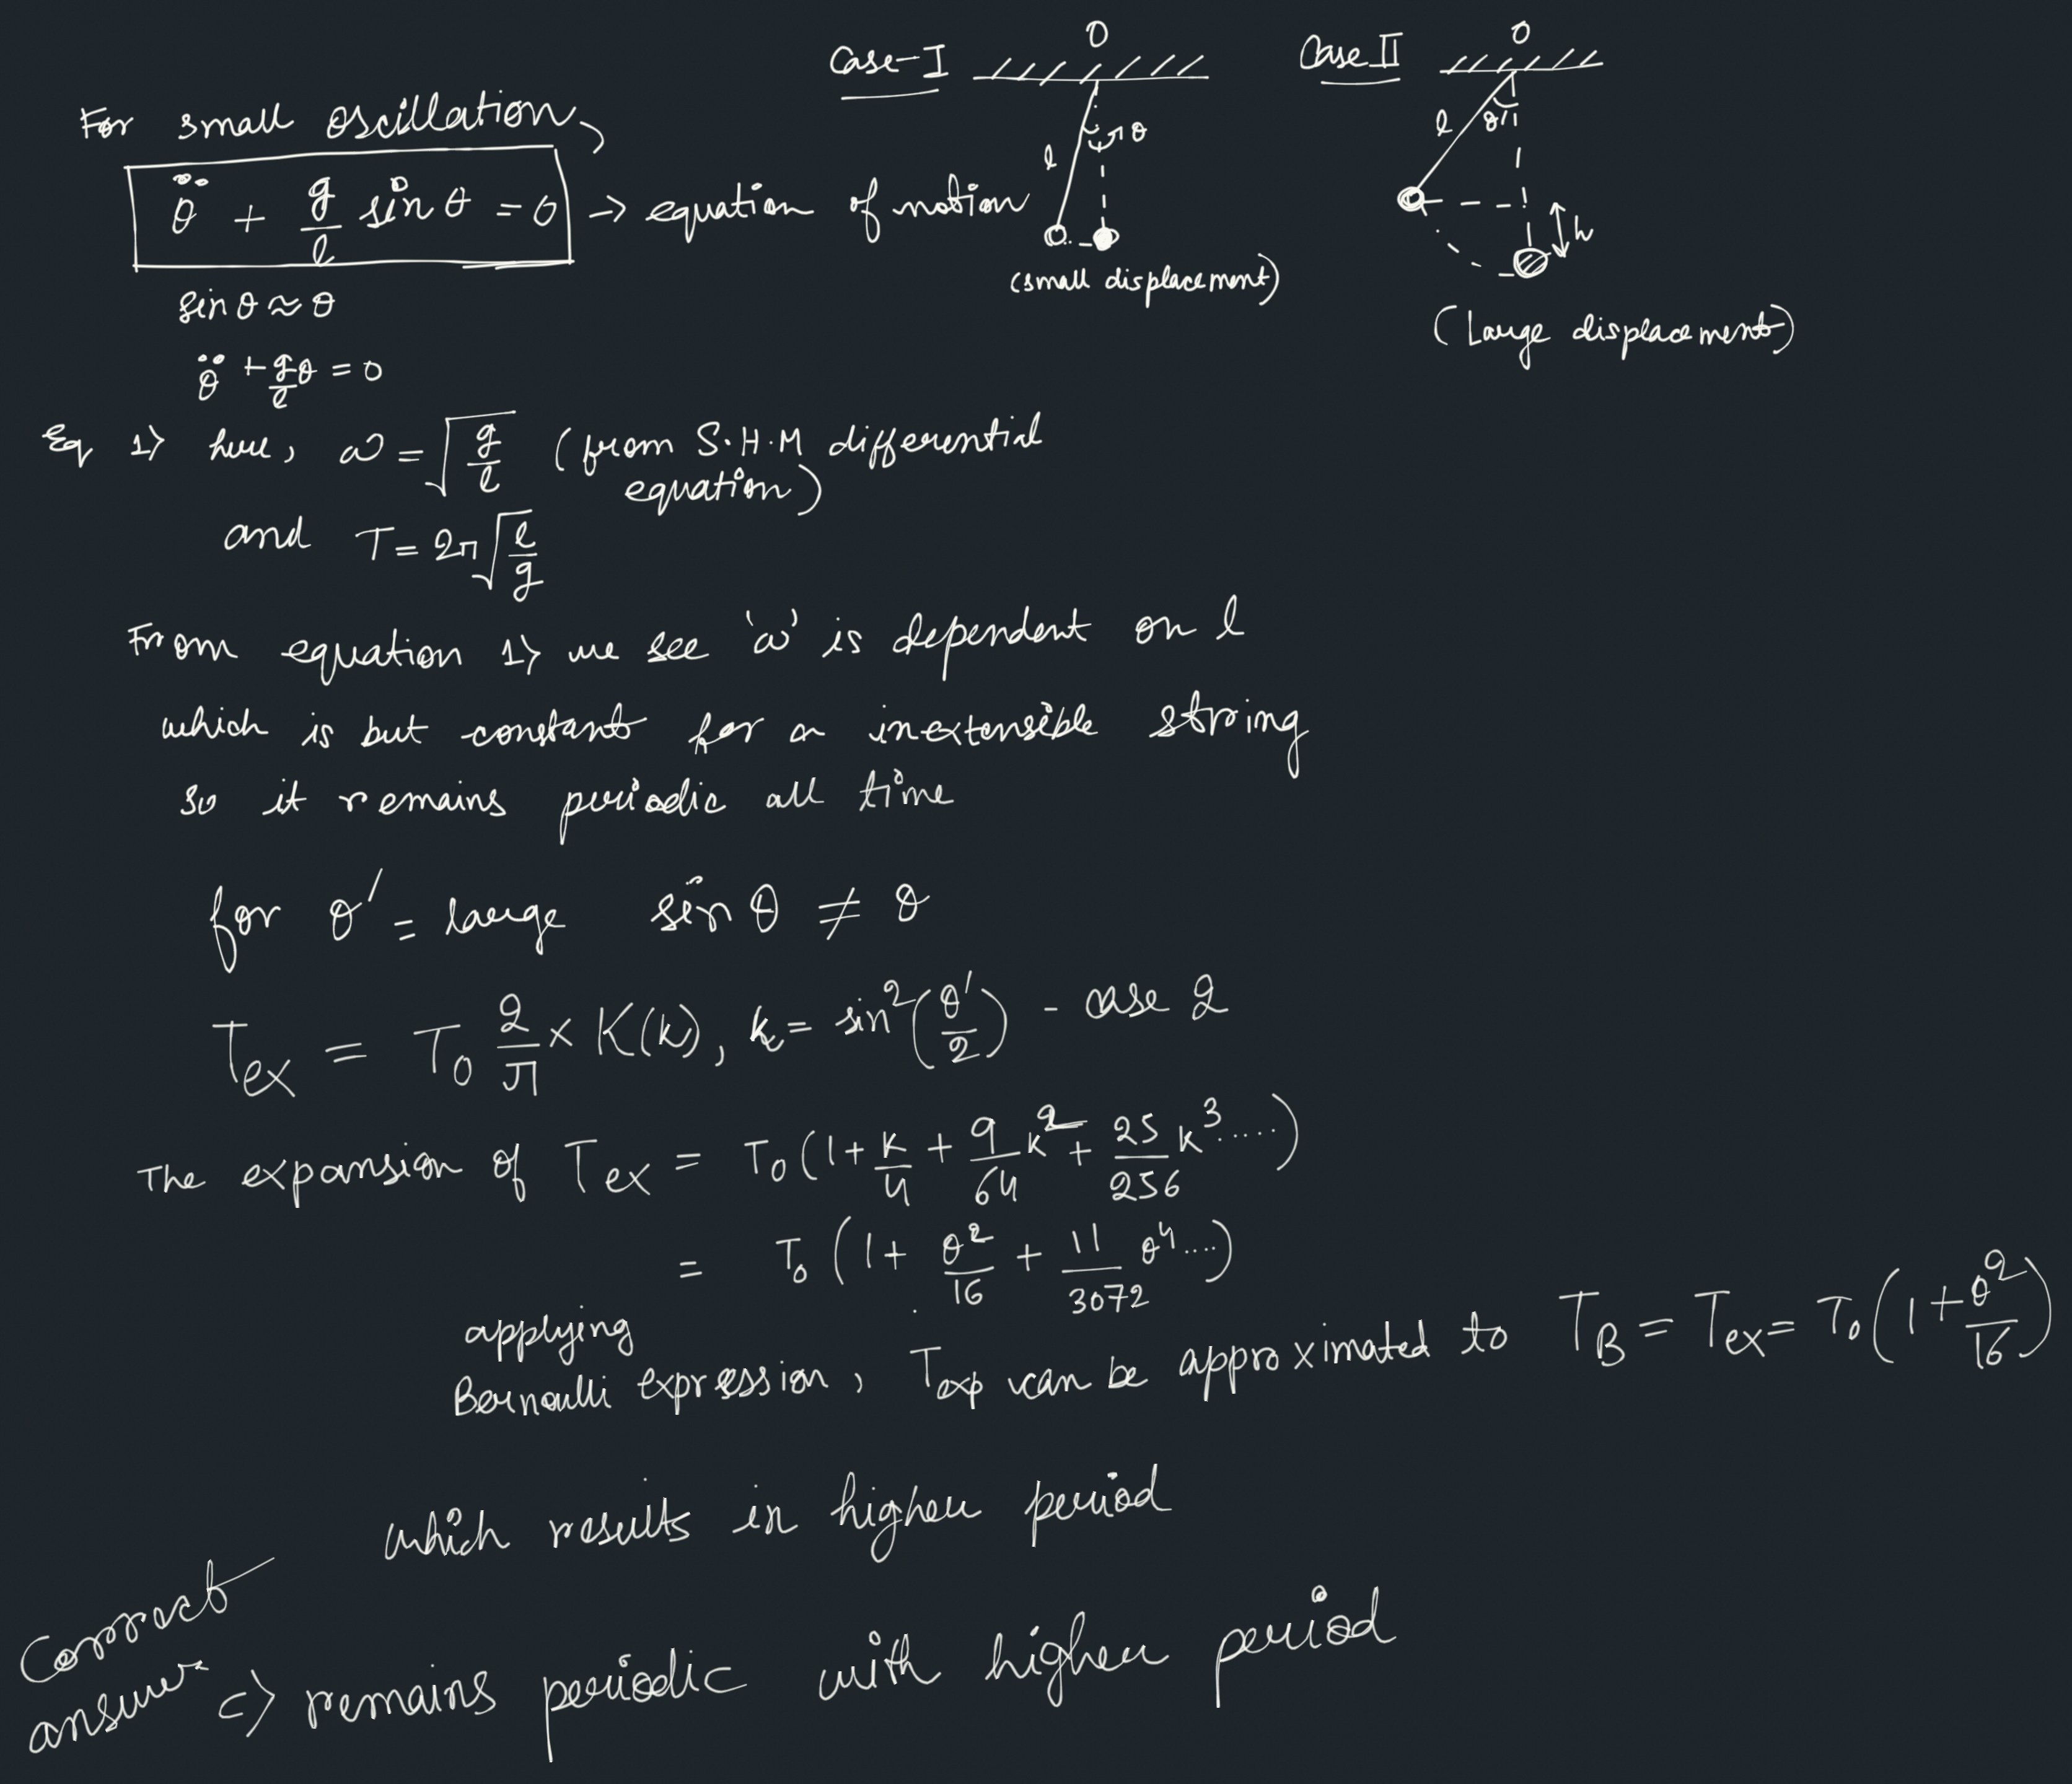 Case-I
O
θ
l
(small displacement)
Case II
O
l θ'
h
(Large displacement)
For small oscillation,
θ̈ + g/l sin θ = 0 → equation of motion
sin θ ≈ θ
θ̈ + g/l θ = 0
Eq 1) here, ω = √(g/l) (from S.H.M differential
equation)
and T = 2π√(l/g)
From equation 1) we see 'ω' is dependent on l
which is but constant for a inextensible string
so it remains periodic all time
for θ' = large sin θ ≠ θ
T_ex = T_0 2/π × K(k), k = sin²(θ'/2) - case 2
The expansion of T_ex = T_0 (1 + k/4 + 9/64 k² + 25/256 k³ .....)
= T_0 (1 + θ²/16 + 11/3072 θ⁴ ....)
applying
Bernoulli expression, T_exp can be approximated to T_B = T_ex = T_0 (1 + θ²/16)
which results in higher period
Correct
answer c) remains periodic with higher period